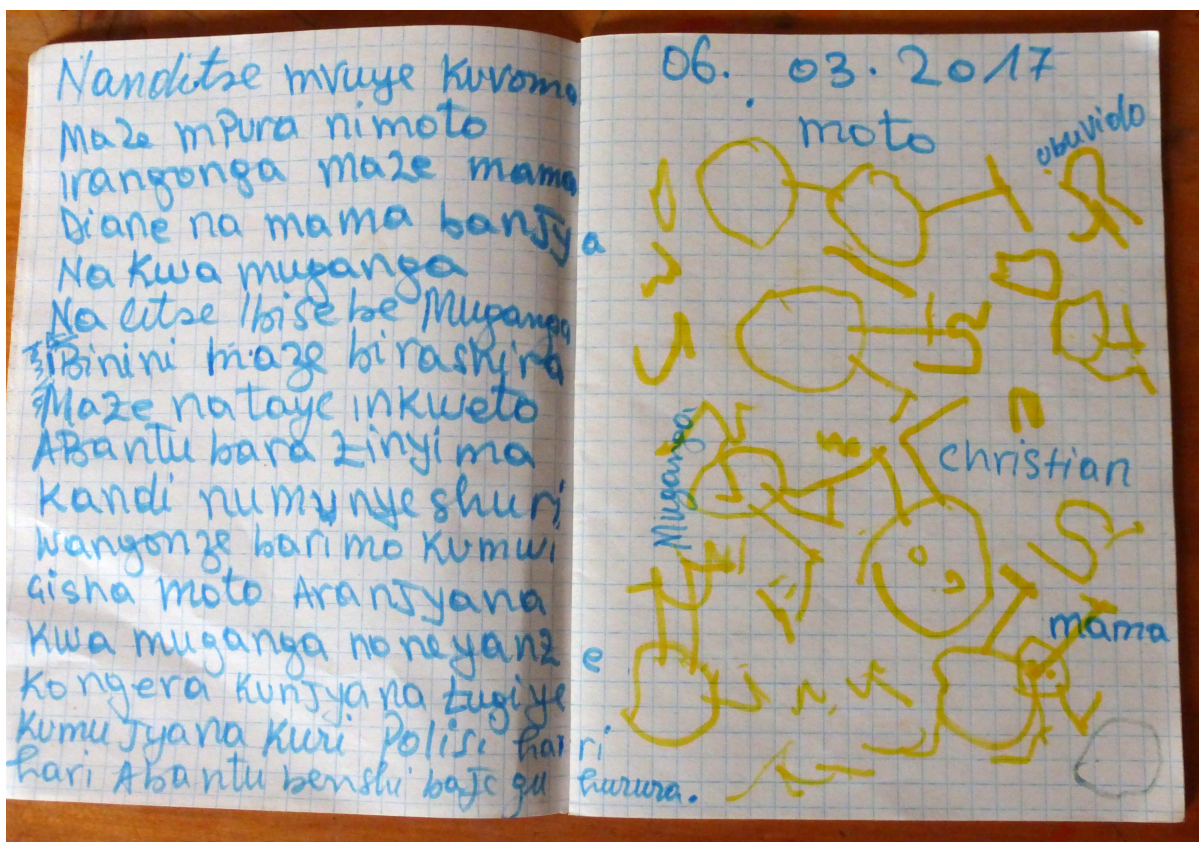 Nanditse mvuye kuvoma
Maze mpura nimoto
irangonga maze mama
Diane na mama banjya
Na kwa muganga
Na litse Ibisebe Muganga
iBinini maze biraskira
Maze nataye inkweto
ABantu bara zinyima
kandi numunyeshuri
wangonze barimo kumwi
Gisha moto Aranjyana
kwa muganga none yanze
kongera kunjyana tugiye
kumujyana kuri Polisi hari
hari Abantu benshi baje gu hurura.
06. 03. 2017
moto
ubuvido
Muganga
christian
mama